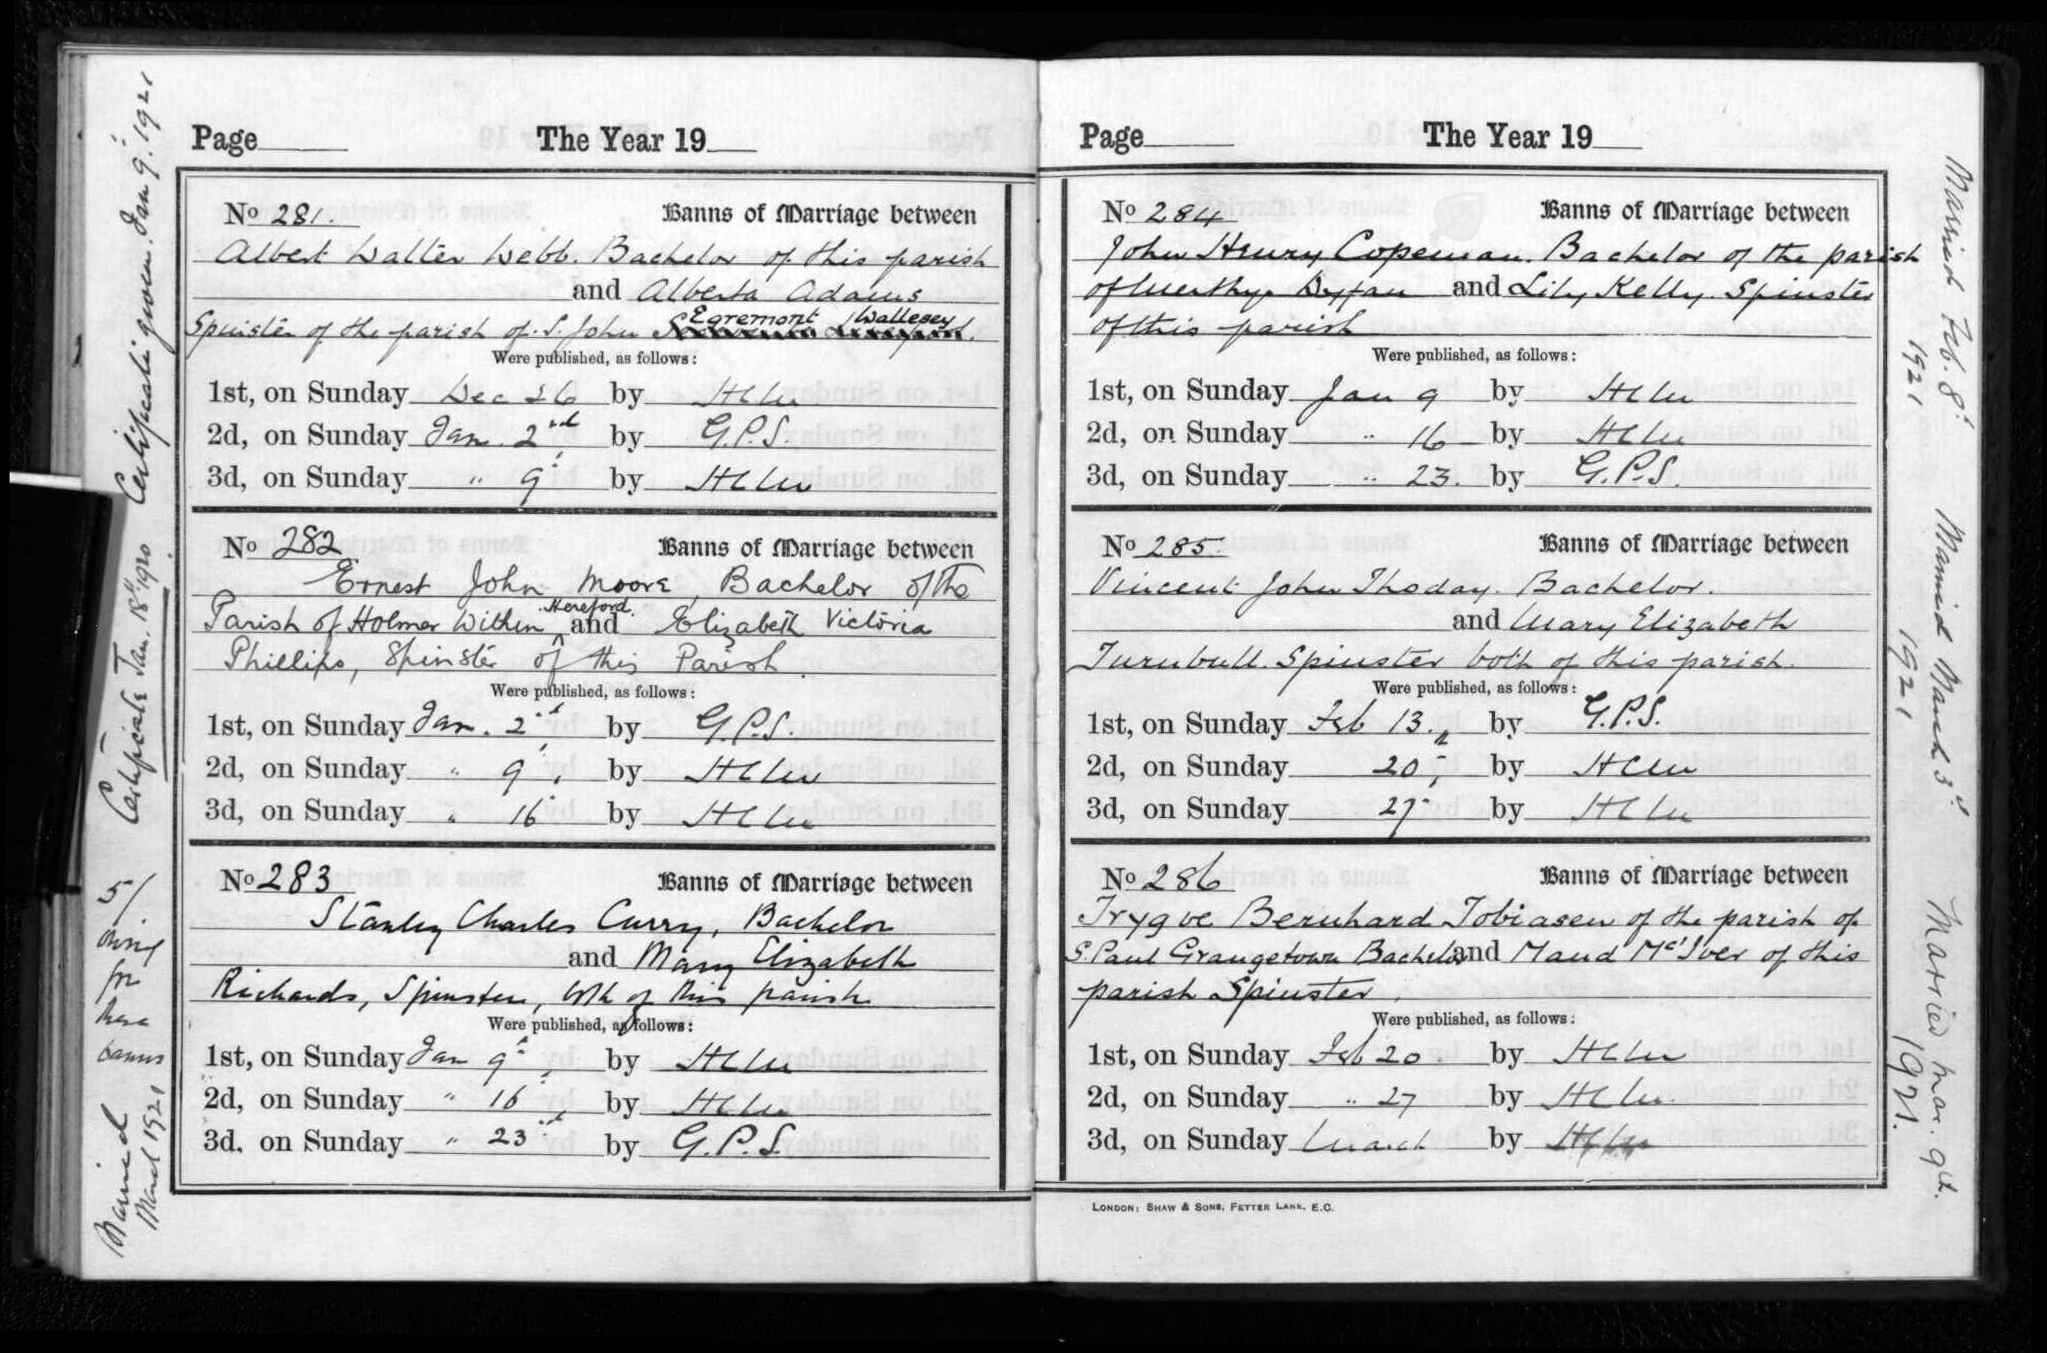 Page
The Year 19
No 281.
Banns of Marriage between
Albert Walter Webb. Bachelor of this parish
and Alberta Adams
Egremont Wallesey
Spinster of the parish of S. John
Were published, as follows:
1st, on Sunday Dec 26 by
2d, on Sunday Jan. 2nd by G.P.S.
3d, on Sunday " 9 by
No 282
Banns of Marriage between
Ernest John Moore, Bachelor of the
Hereford
Parish of Holmer Within and Elizabeth Victoria
Phillips, Spinster of this Parish.
Were published, as follows:
1st, on Sunday Jan. 2nd by G.P.S.
2d, on Sunday " 9 by
3d, on Sunday " 16 by
No 283
Banns of Marriage between
Stanley Charles Curry, Bachelor
and Mary Elizabeth
Richards, Spinster, both of this parish
Were published, as follows:
1st, on Sunday Jan 9th by
2d, on Sunday " 16 by
3d. on Sunday " 23rd by G.P.S.
Certificate given. Jan 9. 1921
Certificate Jan. 18th 1920
5/
owing
for
these
banns
Married
March 1921
Page
The Year 19
No 284
Banns of Marriage between
John Henry Copeman. Bachelor of the parish
of Merthyr Dyfan and Lily Kelly. Spinster
of this parish
Were published, as follows:
1st, on Sunday Jan 9 by
2d, on Sunday " 16 by
3d, on Sunday " 23. by G.P.S.
No 285.
Banns of Marriage between
Vincent John Thoday. Bachelor.
and Mary Elizabeth
Turnbull. Spinster both of this parish.
Were published, as follows:
1st, on Sunday Feb 13. by G.P.S.
2d, on Sunday 20 by
3d, on Sunday 27 by
No 286
Banns of Marriage between
Trygve Bernhard Tobiasen of the parish of
S. Paul Grangetown Bachelor and Maud McIver of this
parish Spinster.
Were published, as follows:
1st, on Sunday Feb 20 by
2d, on Sunday " 27 by
3d, on Sunday March by
LONDON: SHAW & SONS, FETTER LANE, E.C.
Married Feb. 8
1921
Married March 3d
1921
Married Mar. 9th.
1921.